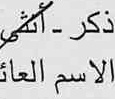 ذكر - أنثى
الاسم العائ